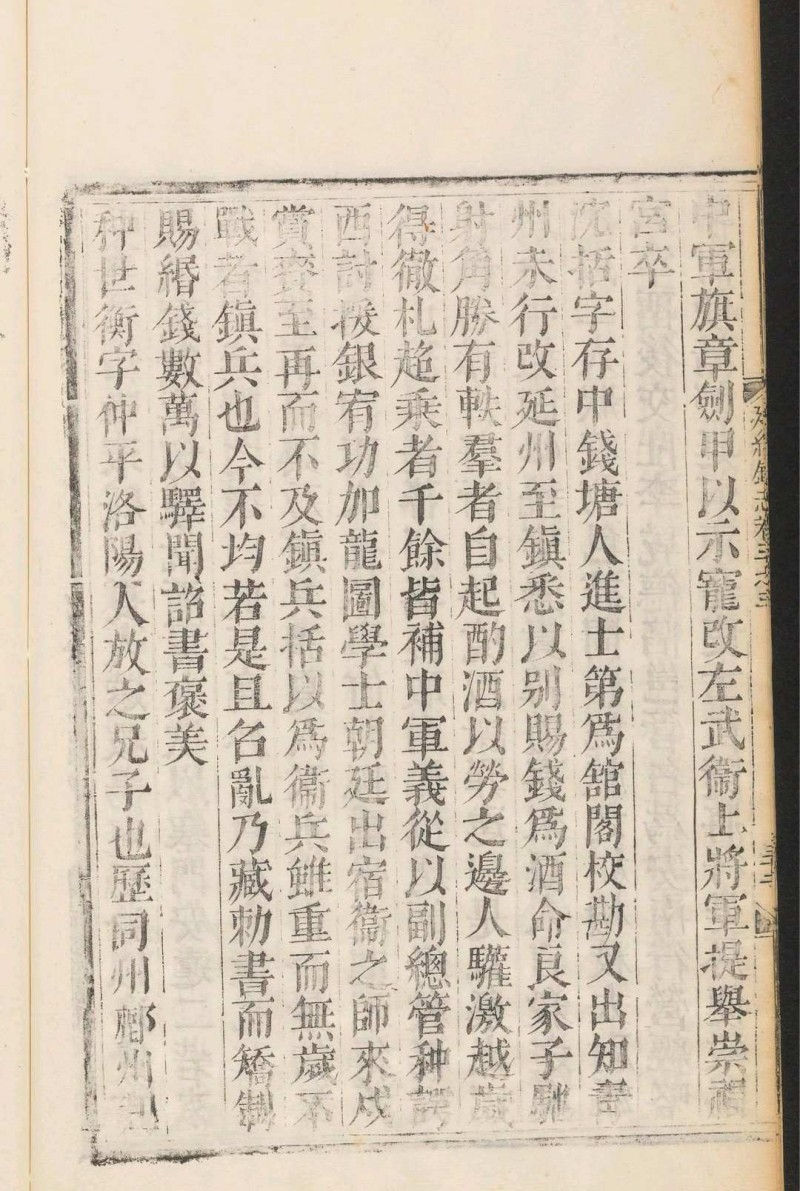 中軍旗章劍甲以示寵改左武衞上將軍提舉崇禧
宮卒
沈括字存中錢塘人進士第爲舘閣校勘又出知青
州未行改延州至鎮悉以别賜錢爲酒命良家子馳
射角勝有軼羣者自起酌酒以勞之邊人驩激越歲
得徹札超乘者千餘皆補中軍義從以副總管种諤
西討援銀宥功加龍圖學士朝廷出宿衞之師來戍
賞賚至再而不及鎮兵括以爲衞兵雖重而無歲不
戰者鎮兵也今不均若是且召亂乃藏勅書而矯制
賜緡錢數萬以驛聞詔書褒美
种世衡字仲平洛陽人放之兄子也歷同州鄜州
延綏鎮志卷三之三